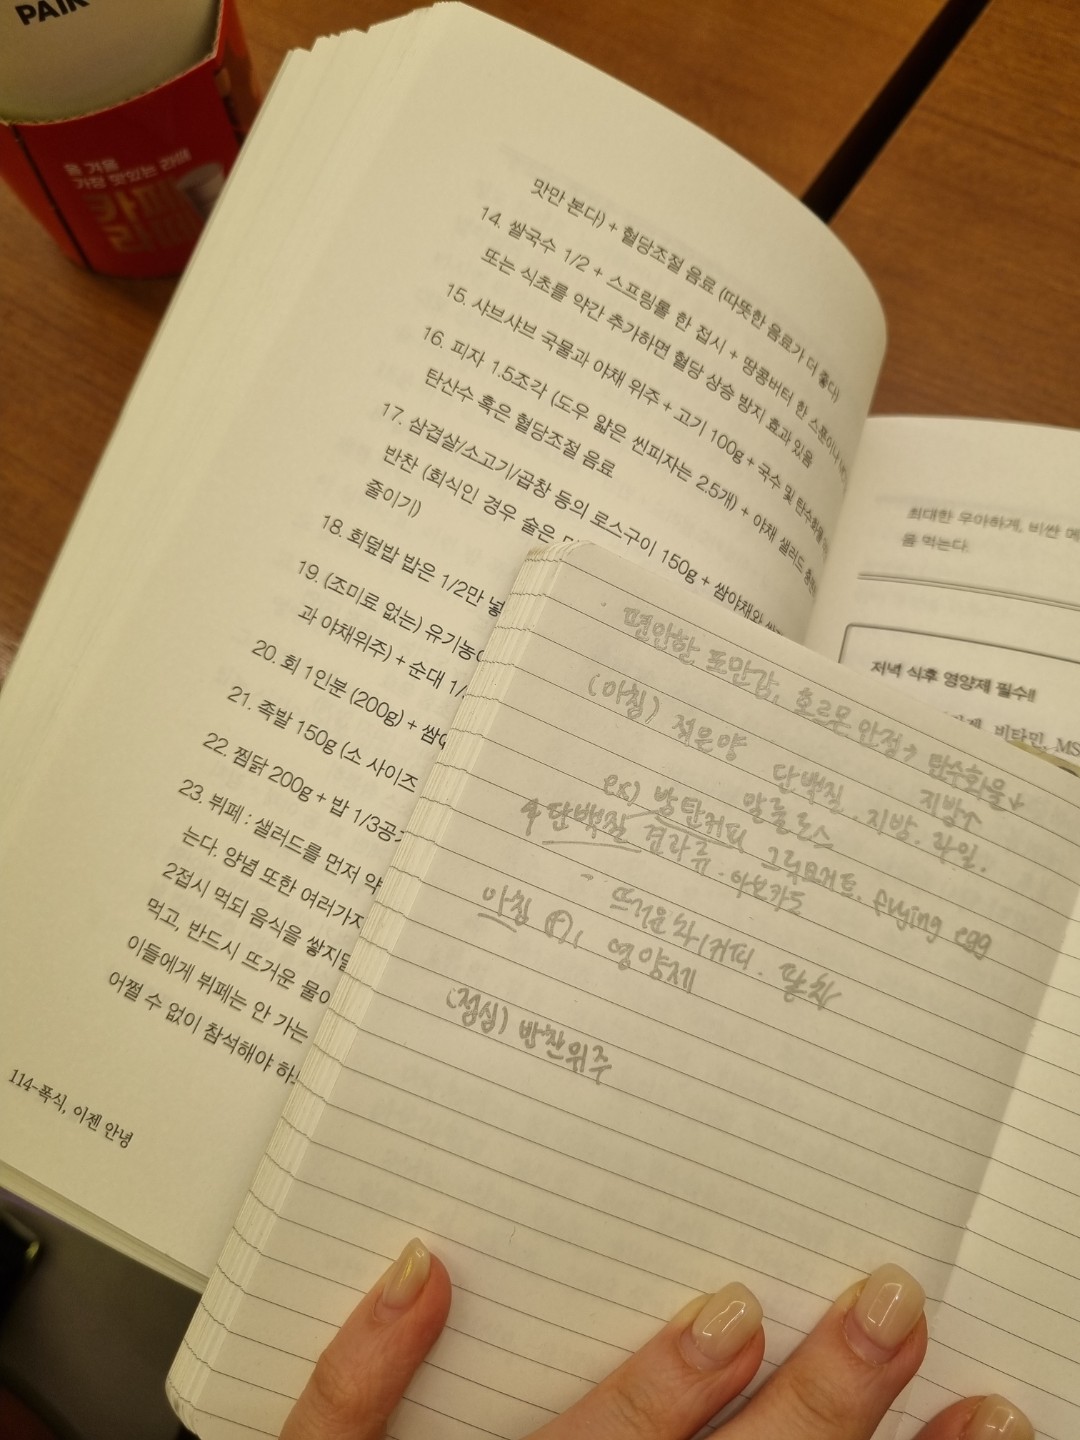 PAIK
올 겨울
가장 맛있는 라떼
카페
라떼
맛만 본다) + 혈당조절 음료 (따뜻한 음료가 더 좋다)
14. 쌀국수 1/2 + 스프링롤 한 접시 + 땅콩버터 한 스푼이나
또는 식초를 약간 추가하면 혈당 상승 방지 효과 있음
15. 샤브샤브 국물과 야채 위주 + 고기 100g + 국수 및 탄수화물
16. 피자 1.5조각 (도우 얇은 씬피자는 2.5개) + 야채 샐러드
탄산수 혹은 혈당조절 음료
17. 삼겹살/소고기/곱창 등의 로스구이 150g + 쌈야채와
반찬 (회식인 경우 술은
줄이기)
18. 회덮밥 밥은 1/2만
19. (조미료 없는) 유기농
과 야채위주) + 순대
20. 회 1인분 (200g) +
21. 족발 150g (소 사이즈
22. 찜닭 200g + 밥 1/3공
23. 뷔페 : 샐러드를 먼저
는다. 양념 또한 여러가지
2접시 먹되 음식을
먹고, 반드시 뜨거운 물
이들에게 뷔페는 안 가는
어쩔 수 없이 참석해야
114-폭식, 이젠 안녕
최대한 우아하게, 비싼
음 먹는다.
저녁 식후 영양제 필수!!
비타민, MS
편안함, 포만감, 호르몬 안정 → 탄수화물↓
지방↑
(아침) 적은양 단백질. 지방. 과일.
ex) 방탄커피 알룰로스 그릭요거트. frying egg
단백질 견과류. 아보카도
뜨거운 차/커피.
아침 영양제
(점심) 반찬위주